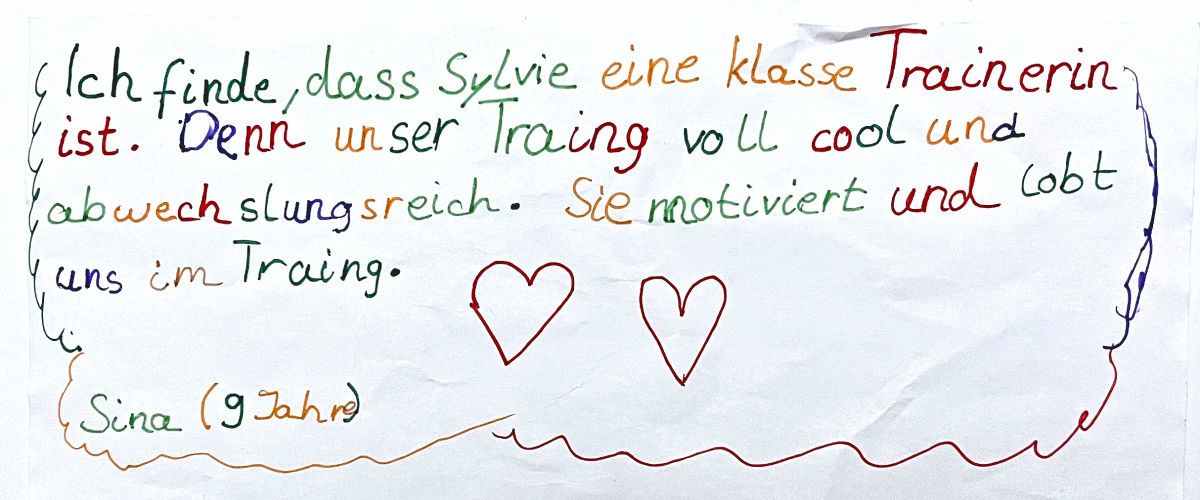 Ich finde, dass Sylvie eine klasse Trainerin
ist. Denn unser Traing voll cool und
abwechslungsreich. Sie motiviert und lobt
uns im Traing.
Sina (9 Jahre)